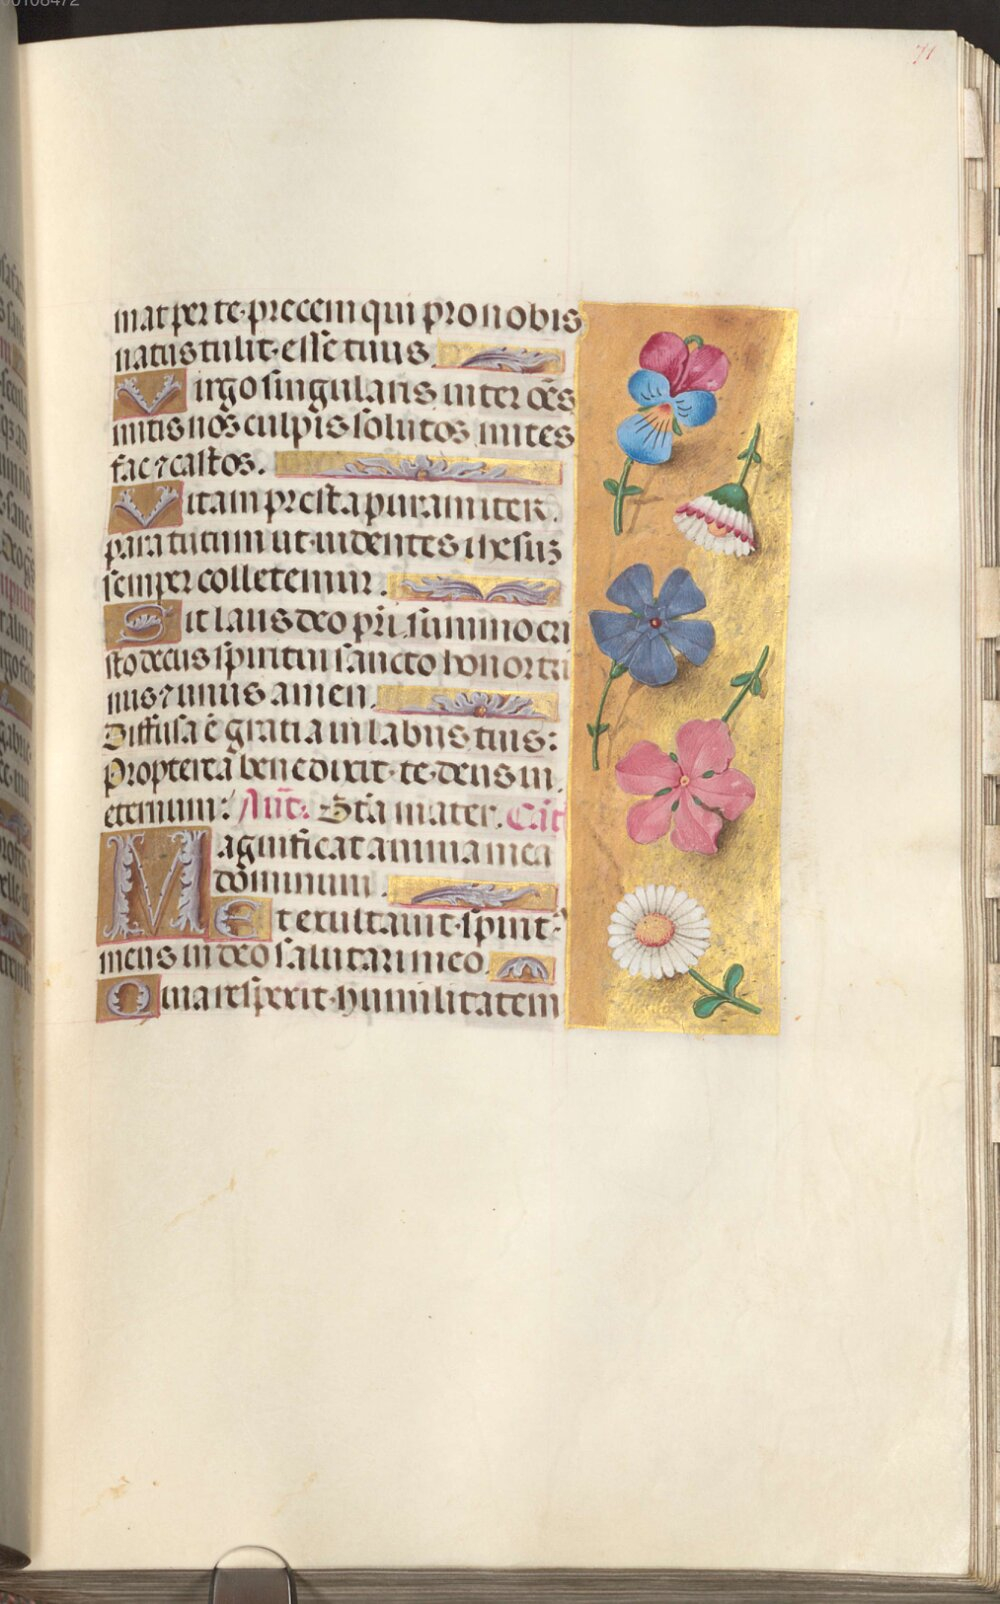 00108472
71
mat per te precem qui pro nobis
natus tulit esse tuus.
Virgo singularis inter oẽs
mitis nos culpis solutos mites
fac ⁊ castos.
Vitam presta puram iter
para tutum ut uidentes ihesus
semper colletemur.
Sit laus deo pr̃i summo cri
sto decus spiritui sancto honor tri
nus ⁊ unus amen.
Diffusa ẽ gratia in labiis tuis:
Propterea benedixit te deus in
eternum: Ant̃: Scã mater. Cañt
Magnificat anima mea
dominum.
Et exultauit spirit᷒
meus in deo salutari meo.
Quia respexit humilitatem